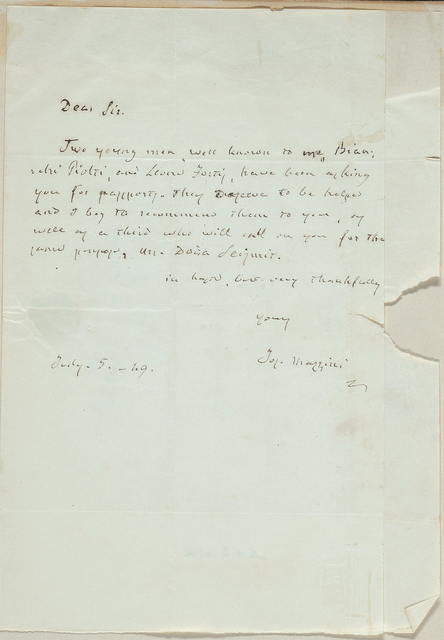 Dear Sir.
Two young men, well known to me, Bian,
Piolti, and Forti, have been asking
you for passports. They deserve to be helped
and I beg to recommend them to you, as
well as a third who will call on you for the
same purpose, Mr. Doña
in haste, but very thankfully
yours
July. 5. - 49.
Jos. Mazzini